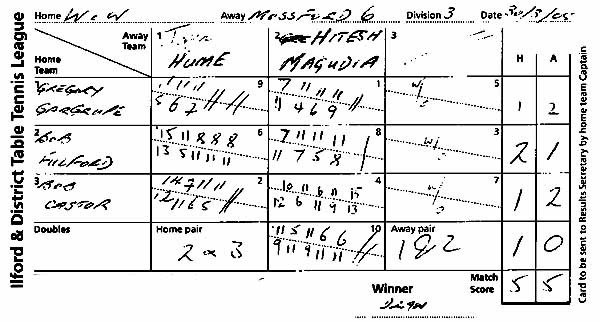 Ilford & District Table Tennis League
Home W&W Away MOSSFORD 6 Division 3 Date 30/3/05
Away Team
Home Team
1
HUME
2 HITESH
MAGUDIA
3
H A
1 GREGORY
GARGRAVE
9
5 6 7 11 11
7 11 11 11 1
11 4 6 9
W/O 5
1 2
2 BOB
MILFORD
15 11 8 8 8 6
13 5 11 11 11
7 11 11 11 8
11 7 5 8
W/O 3
2 1
3 BOB
CASTOR
14 7 11 11 2
12 11 6 5
10 11 6 11 15 4
12 6 11 9 13
W/O 7
1 2
Doubles
Home pair
2 & 3
11 5 11 6 6 10
9 11 9 11 11
Away pair
1 & 2
1 0
Winner
Match Score
5 5
Card to be sent to Results Secretary by home team Captain